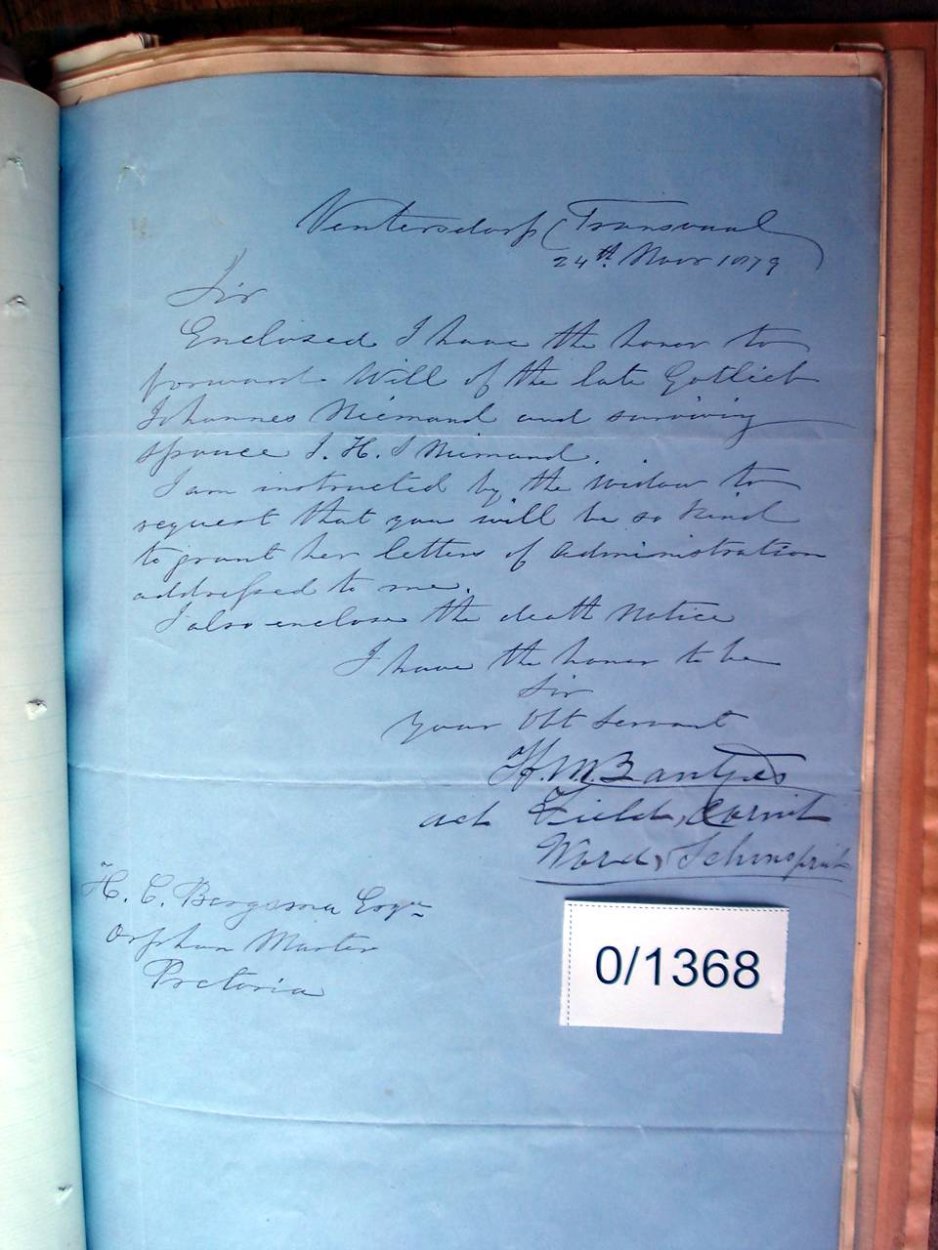 Ventersdorp (Transvaal
24th Novr 1879
Sir
Enclosed I have the honor to
forward Will of the late Gotlieb
Johannes Niemand and surviving
spouce J. H. S Niemand.
I am instructed by the widow to
request that you will be so kind
to grant her letters of administration
addressed to me.
I also enclose the death notice
I have the honor to be
Sir
your Obt Servant
H. M.
act Field, Cornet
Ward, Schoonspruit
H. C. Bergsma Esqre
Orphan Master
Pretoria
0/1368